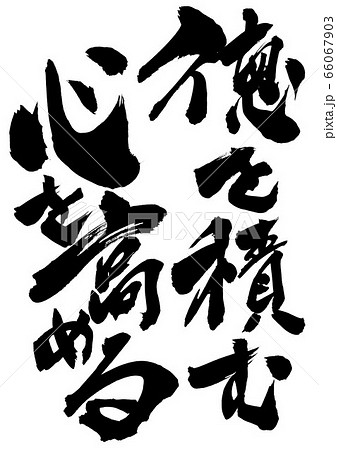 徳を積む
心を高める
PIXTA
pixta.jp - 66067903